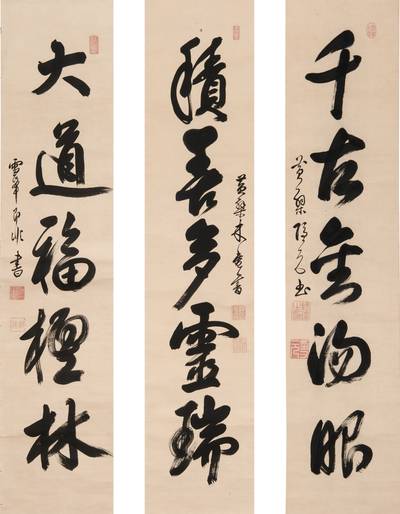 千古金湯眼
黃檗隱元書
積善多靈瑞
黃檗木菴書
大道福檀林
雪峯即非書